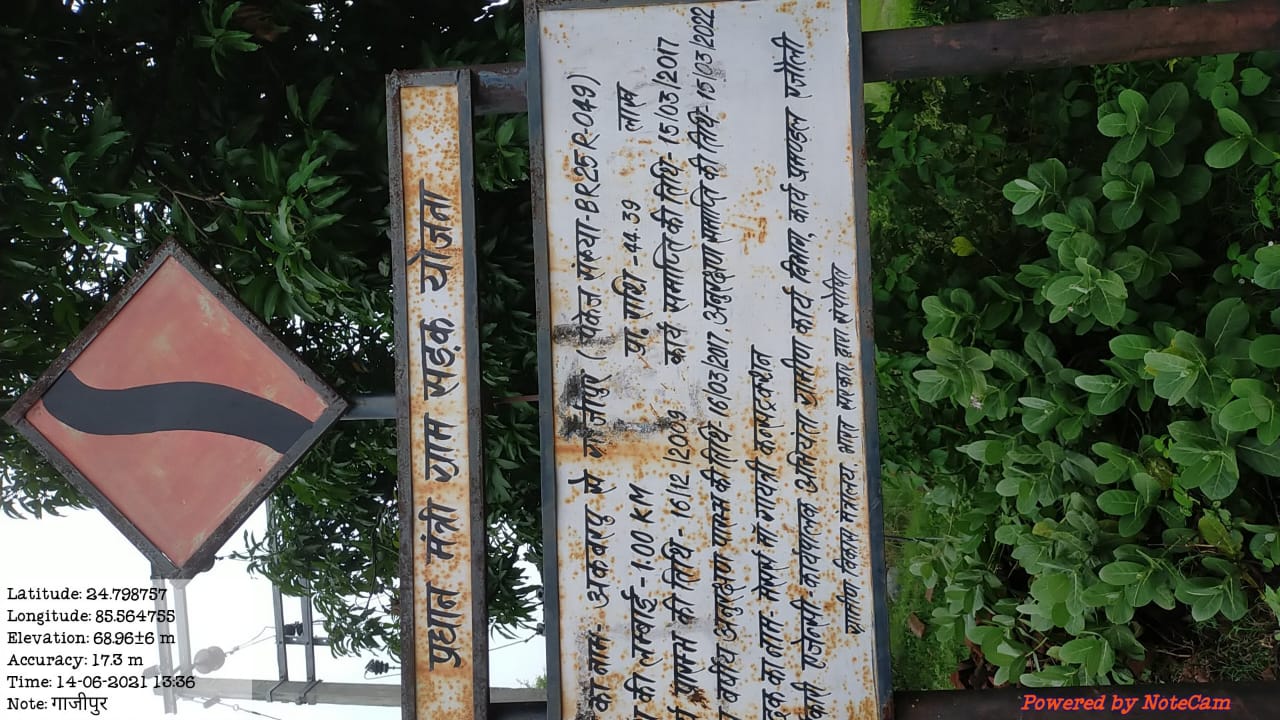 प्रधान मंत्री ग्राम सड़क योजना
का नाम:- अकबरपुर से गाजीपुर ( पैकेज संख्या-BR25R-049)
की लम्बाई - 1.00 KM प्रा. राशि - 44.39 लाख
प्रारम्भ की तिथि - 16/12/2009 कार्य समाप्ति की तिथि- 15/03/2017
वर्षीय अनुरक्षण प्रारम्भ की तिथि- 16/03/2017, अनुरक्षण समाप्ति की तिथि- 15/03/2022
का नाम- मेसर्स माँ गायत्री कन्सट्रक्शन
एजेन्सी- कार्यपालक अभियंता ग्रामीण कार्य विभाग, कार्य प्रमण्डल रजौली
ग्रामीण विकास मंत्रालय, भारत सरकार द्वारा संपोषित
Latitude: 24.798757
Longitude: 85.564755
Elevation: 68.96±6 m
Accuracy: 17.3 m
Time: 14-06-2021 13:36
Note: गाजीपुर
Powered by NoteCam